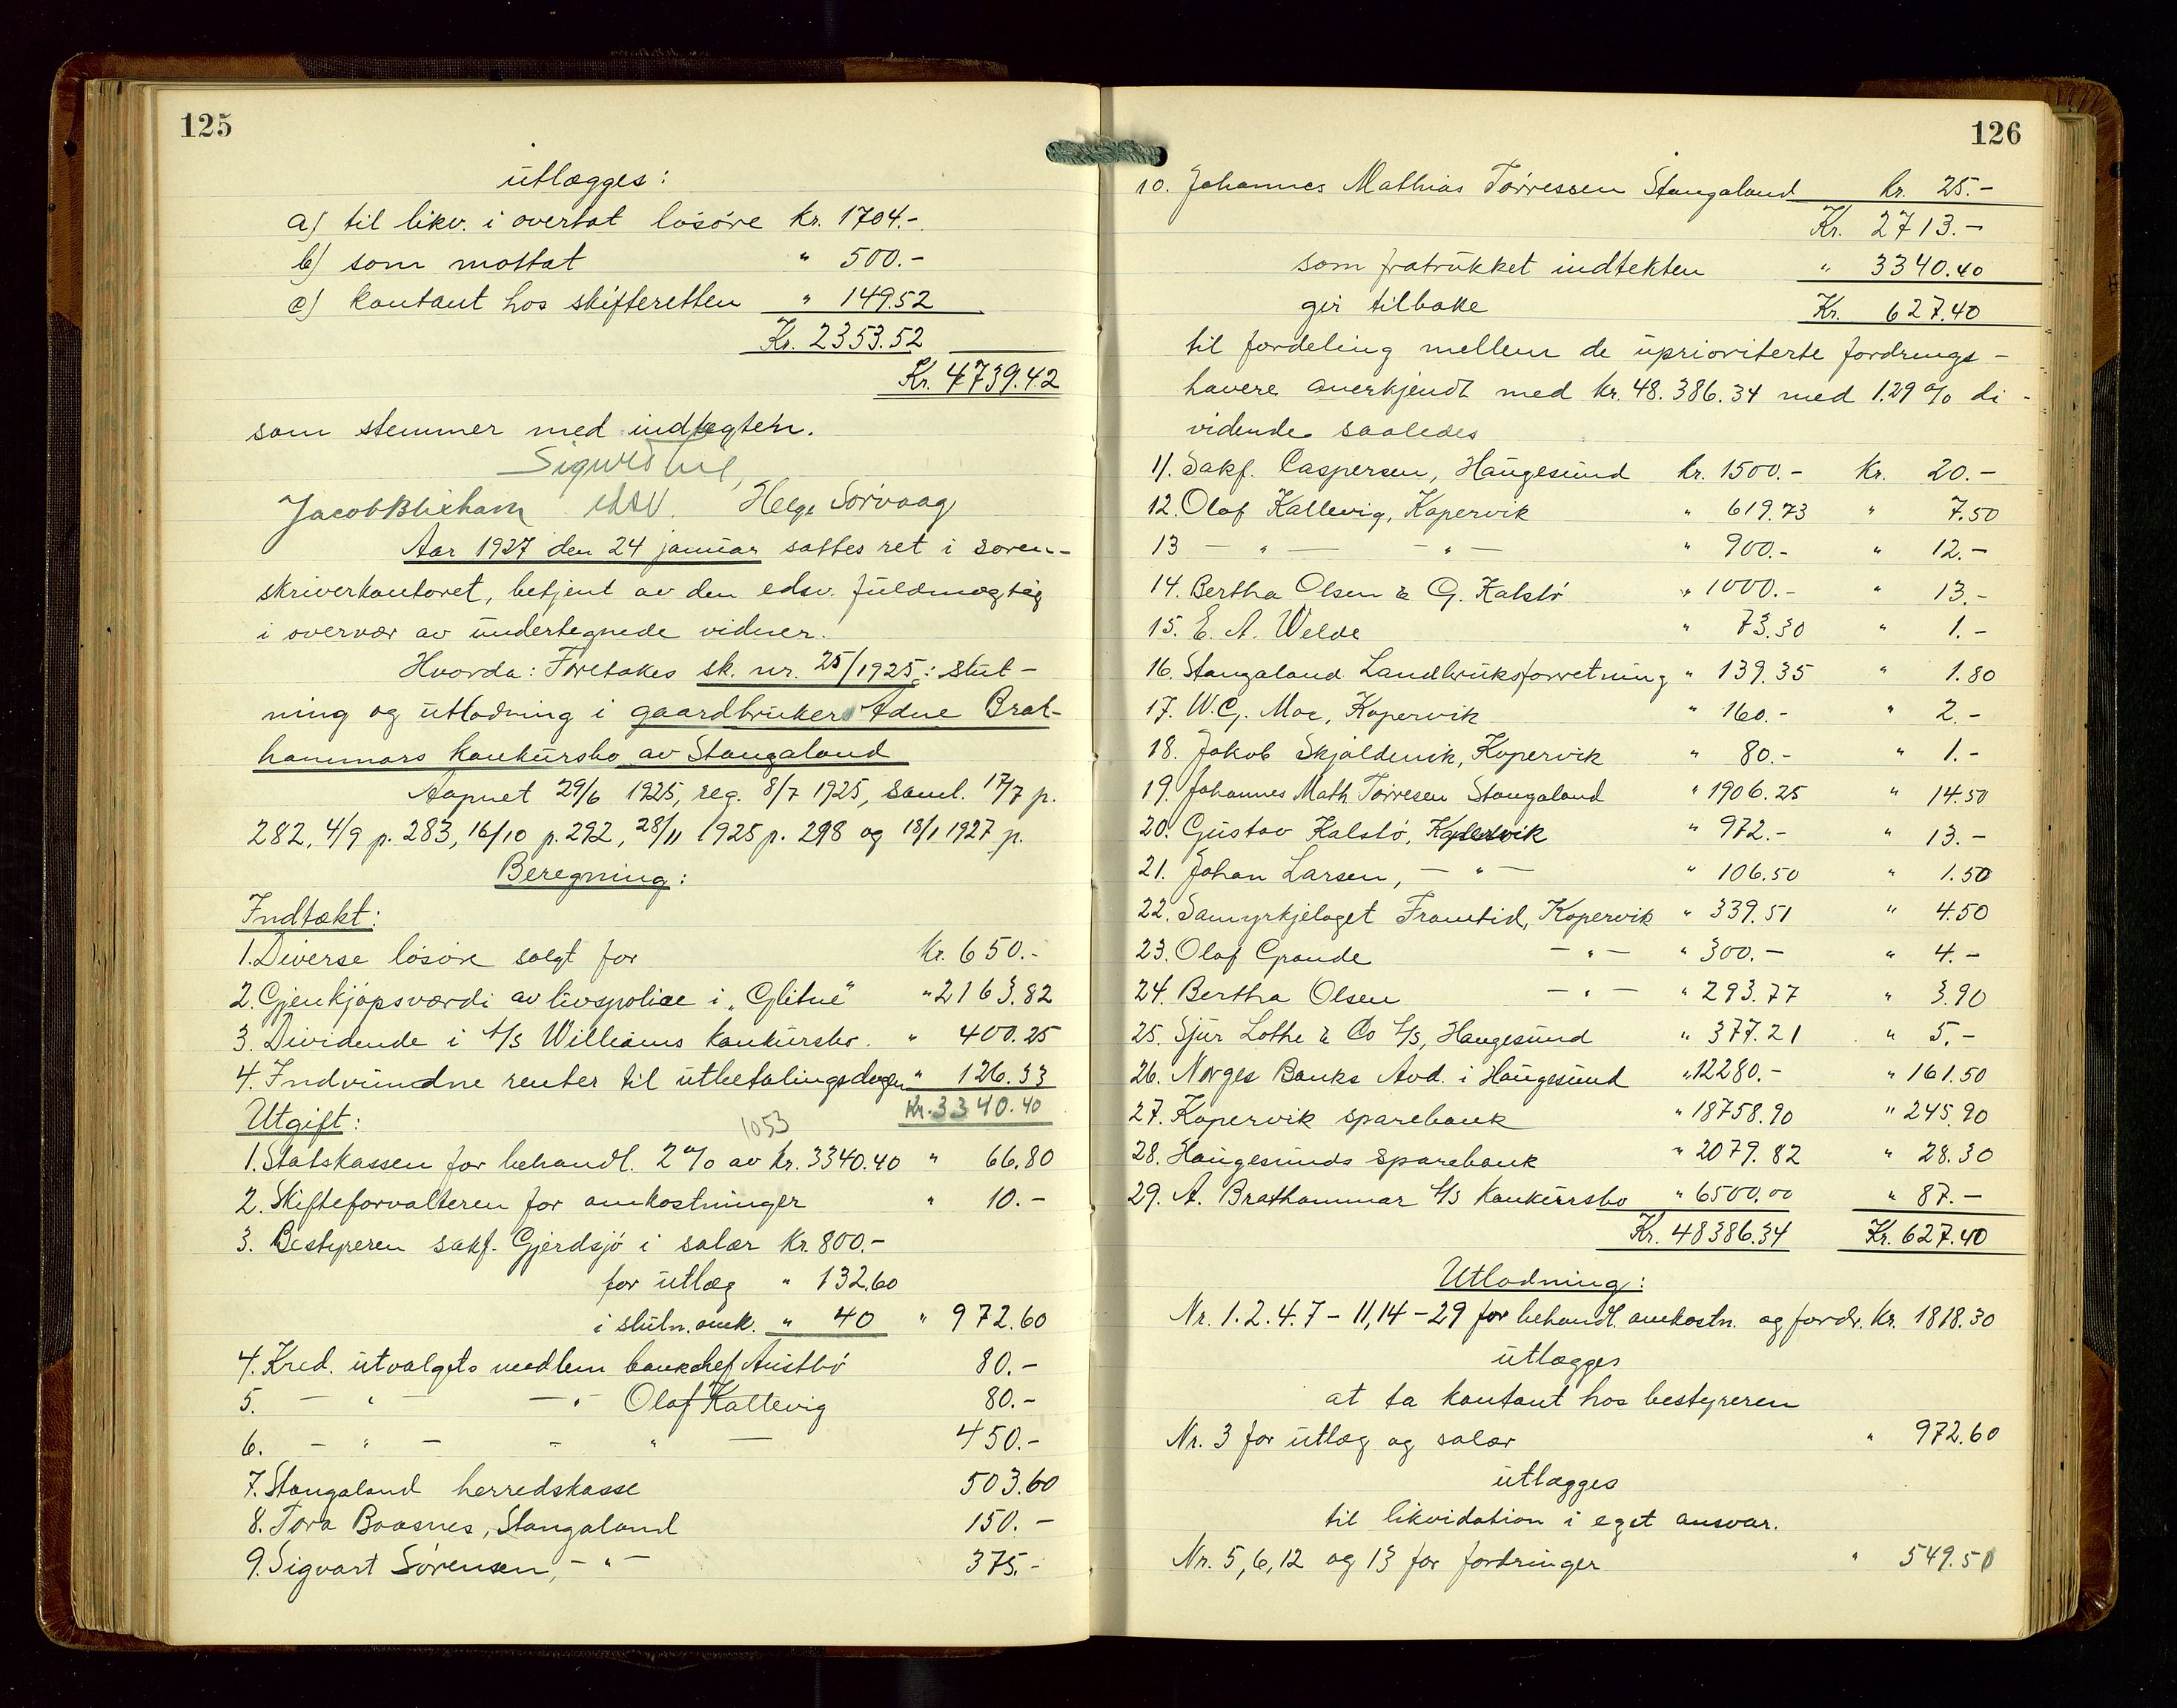 125
utlægges:
a) til likv. i overtat lösöre kr. 1704.-
b) som mottat " 500.-
c) kontant hos skifteretten " 149.52
Kr. 2353.52
Kr. 4739.42
som stemmer med indtægten.
Helge Sörvaag
Aar 1927 den 24 januar sattes ret i soren-
skriverkontoret, betjent av den edsv. fuldmægtig
i overvær av undertegnede vidner.
Hvorda: Foretokes sk. nr. 25/1925: slut-
ning og utlodning i gaardbruker Adne Brat-
hammars konkursbo av Stangaland
Aapnet 29/6 1925, reg. 8/7 1925, saml. 17/7 p.
282, 4/9 p. 283, 16/10 p. 292, 28/11 1925 p. 298 og 18/1 1927 p.
Beregning:
Indtækt:
1. Diverse lösöre solgt for Kr. 650.-
2. Gjenkjöpsværdi av livspolice i "Glitne" " 2163.82
3. Dividende i A/S Williams konkursbo. " 400.25
4. Indvundne renter til utbetalingsdagen " 126.33
Kr. 3340.40
Utgift:
1053
1. Statskassen for behandl. 2% av kr. 3340.40 " 66.80
2. Skifteforvalteren for omkostninger " 10.-
3. Bestyreren sakf. Gjerdsjö i salær Kr. 800.-
for utlæg " 132.60
i slutn. omk. " 40 " 972.60
4. Kred. utvalgets medlem bankchef Austbö 80.-
5. — " — — " Olaf Kallevig 80.-
6. — " — — " — 450.-
7. Stangaland herredskasse 503.60
8. Tora Boasnes, Stangaland 150.-
9. Sigvart Sörensen, — " — 375.-
126
10. Johannes Mathias Törressen Stangaland kr. 25.-
Kr. 2713.-
som fratrukket indtekten " 3340.40
gir tilbake Kr. 627.40
til fordeling mellem de uprioriterte fordrings-
havere anerkjendt med kr. 48.386.34 med 1.29% di-
vidende saaledes
11. Sakf. Caspersen, Haugesund kr. 1500.- Kr. 20.-
12. Olaf Kallevig, Kopervik " 619.73 " 7.50
13 — " — — " — " 900.- " 12.-
14. Bertha Olsen & G. Kalstö " 1000.- " 13.-
15. E. A. Welde " 73.30 " 1.-
16. Stangaland Landbruksforretning " 139.35 " 1.80
17. W. G. Moe, Kopervik " 160.- " 2.-
18. Jakob Skjoldevik, Kopervik " 80.- " 1.-
19. Johannes Math Törresen Stangaland " 1906.25 " 14.50
20. Gustav Kalstö, Kopervik " 972.- " 13.-
21. Johan Larsen, — " — " 106.50 " 1.50
22. Samyrkjelaget Framtid, Kopervik " 339.51 " 4.50
23. Olaf Grande — " — " 300.- " 4.-
24. Bertha Olsen — " — " 293.77 " 3.90
25. Sjur Lothe & Co A/S, Haugesund " 377.21 " 5.-
26. Norges Banks Avd. i Haugesund " 12280.- " 161.50
27. Kopervik sparebank " 18758.90 " 245.90
28. Haugesunds Sparebank " 2079.82 " 28.30
29. A. Brathammar A/S Konkursbo " 6500.00 " 87.-
Kr. 48386.34 Kr. 627.40
Utlodning:
Nr. 1. 2. 4. 7 - 11, 14 - 29 for behandl. omkostn. og fordr. kr. 1818.30
utlægges
at ta kontant hos bestyreren
Nr. 3 for utlæg og salær " 972.60
utlægges
til likvidation i eget ansvar.
Nr. 5, 6, 12 og 13 for fordringer " 549.50